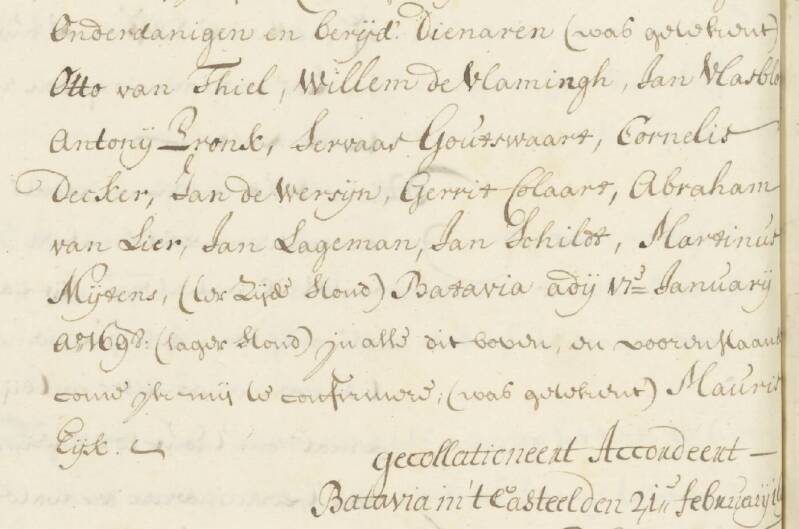 Onderdanigen en berijd: Dienaren (was getekent)
Otto van Thiel, Willem de Vlamingh, Jan Vlasblo
Antonij Bronk, Servaas Goutswaart, Cornelis
Decker, Jan de Wersijn, Gerrit Colaart, Abraham
van Lier, Jan Lageman, Jan Schildt, Martinus
Mijtens, (ter Zijde stond) Batavia adij 17 Januarij
Ao 1698: (lager stond) in alle dit boven, en voorenstaand
come ik mij te confirmere, (was getekent) Maurit
Eijk.
gecollationeert Accordeert
Batavia in't Casteel den 21 februarij